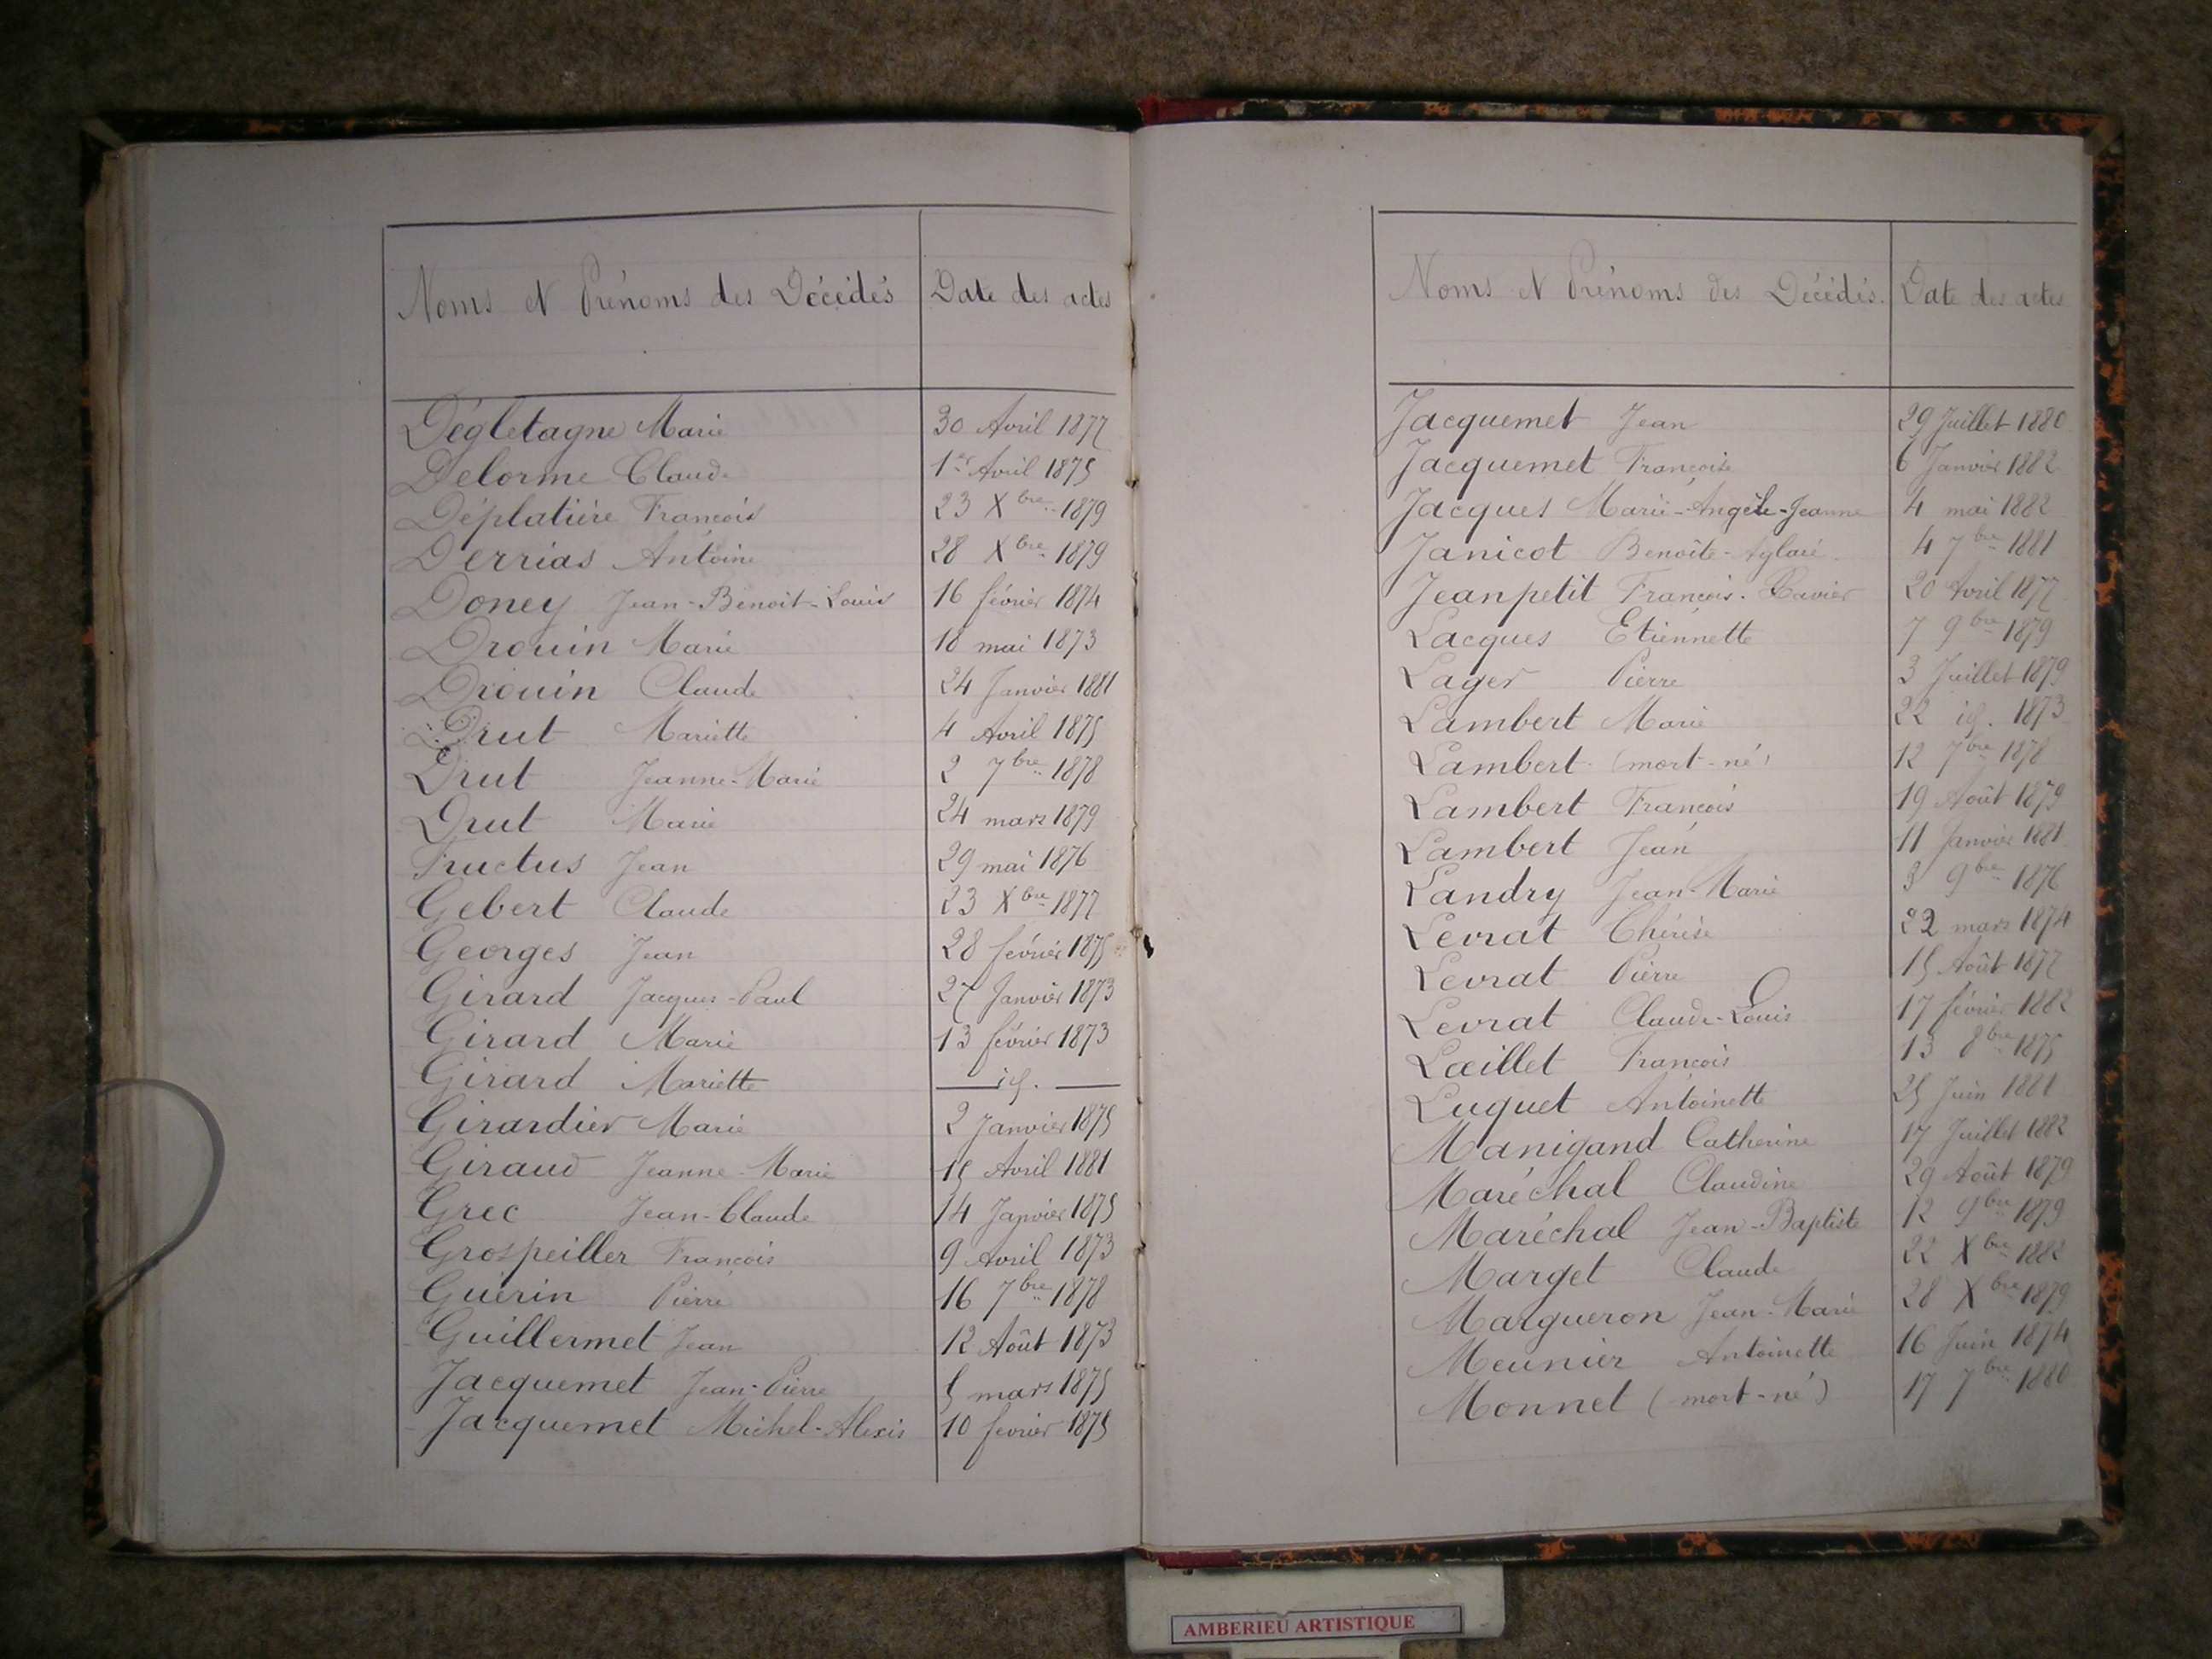 Noms et Prénoms des Décédés Date des actes
Dégletagne Marie 30 Avril 1877
Delorme Claude 1er Avril 1875
Déplatière François 23 Xbre 1879
Derrias Antoine 28 Xbre 1879
Doney Jean-Benoit-Louis 16 février 1874
Drouin Marie 18 mai 1873
Drouin Claude 24 Janvier 1881
Drut Mariette 4 Avril 1875
Drut Jeanne-Marie 2 7bre 1878
Drut Marie 24 mars 1879
Fructus Jean 29 mai 1876
Gebert Claude 23 Xbre 1877
Georges Jean 28 février 1875
Girard Jacques-Paul 27 Janvier 1873
Girard Marie 13 février 1873
Girard Mariette id.
Girardier Marie 2 Janvier 1875
Giraud Jeanne-Marie 15 Avril 1881
Grec Jean-Claude 14 Janvier 1875
Grospeiller François 9 Avril 1873
Guérin Pierre 16 7bre 1878
Guillermet Jean 12 Août 1873
Jacquemet Jean-Pierre 5 mars 1875
Jacquemet Michel-Alexis 10 février 1875
Noms et Prénoms des Décédés. Date des actes
Jacquemet Jean 29 Juillet 1880
Jacquemet Françoise 6 Janvier 1882
Jacques Marie-Angèle-Jeanne 4 mai 1882
Janicot Benoîte-Aglaé 4 7bre 1881
Jeanpetit François-Xavier 20 Avril 1877
Lacques Etiennette 7 9bre 1879
Lager Pierre 3 Juillet 1879
Lambert Marie 22 id. 1873
Lambert (mort-né) 12 7bre 1878
Lambert François 19 Août 1879
Lambert Jean 11 Janvier 1881
Landry Jean-Marie 9bre 1876
Levrat Thérèse 22 mars 1874
Levrat Pierre 15 Août 1877
Levrat Claude-Louis 17 février 1882
Lœillet François 13 8bre 1875
Luquet Antoinette 25 Juin 1881
Manigand Catherine 17 Juillet 1882
Maréchal Claudine 29 Août 1879
Maréchal Jean-Baptiste 12 9bre 1879
Marget Claude 22 Xbre 1882
Margueron Jean-Marie 28 Xbre 1879
Meunier Antoinette 16 Juin 1874
Monnet (mort-né) 17 7bre 1880
AMBERIEU ARTISTIQUE